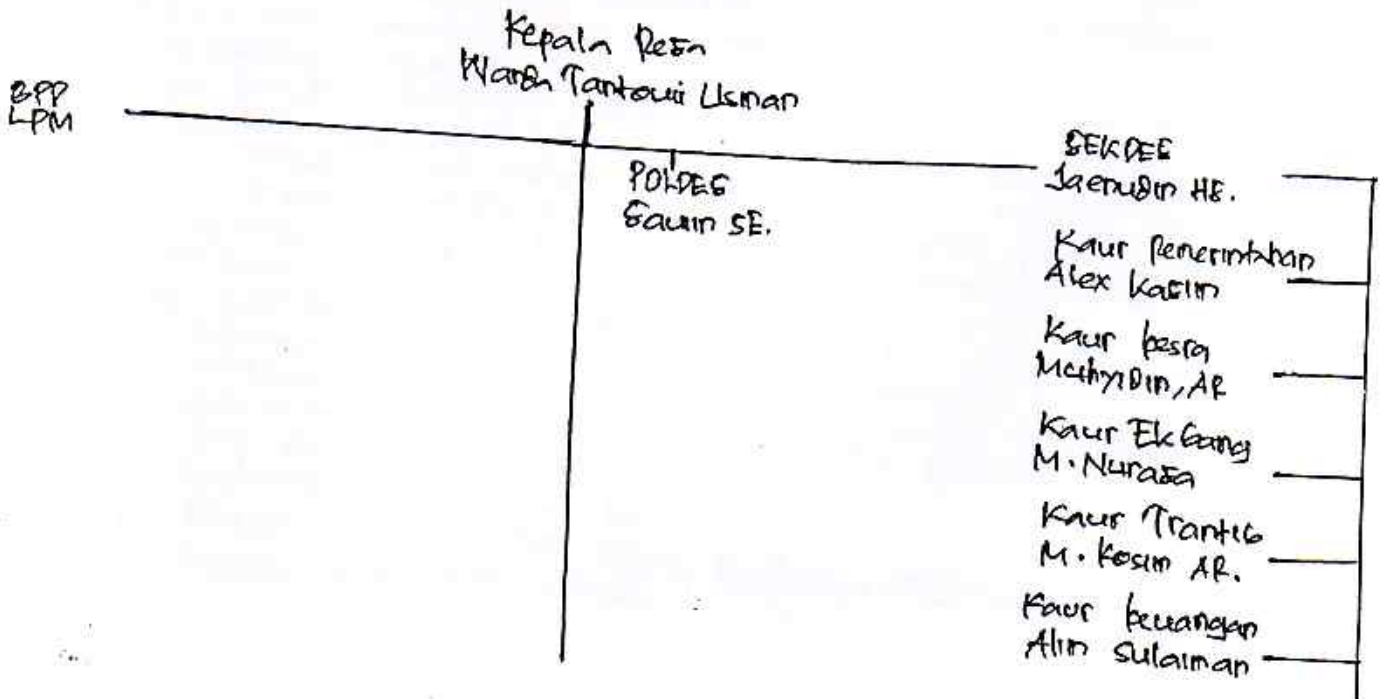 Kepala Desa
Warsa Tantowi Usman
BPD
LPM
POLDES
Sawin SE.
SEKDES
Jaenudin HS.
Kaur Pemerintahan
Alex Kasim
Kaur kesra
Muhyidin, AR
Kaur Ekbang
M. Nurasa
Kaur Trantib
M. Kosim AR.
Kaur keuangan
Alin Sulaiman